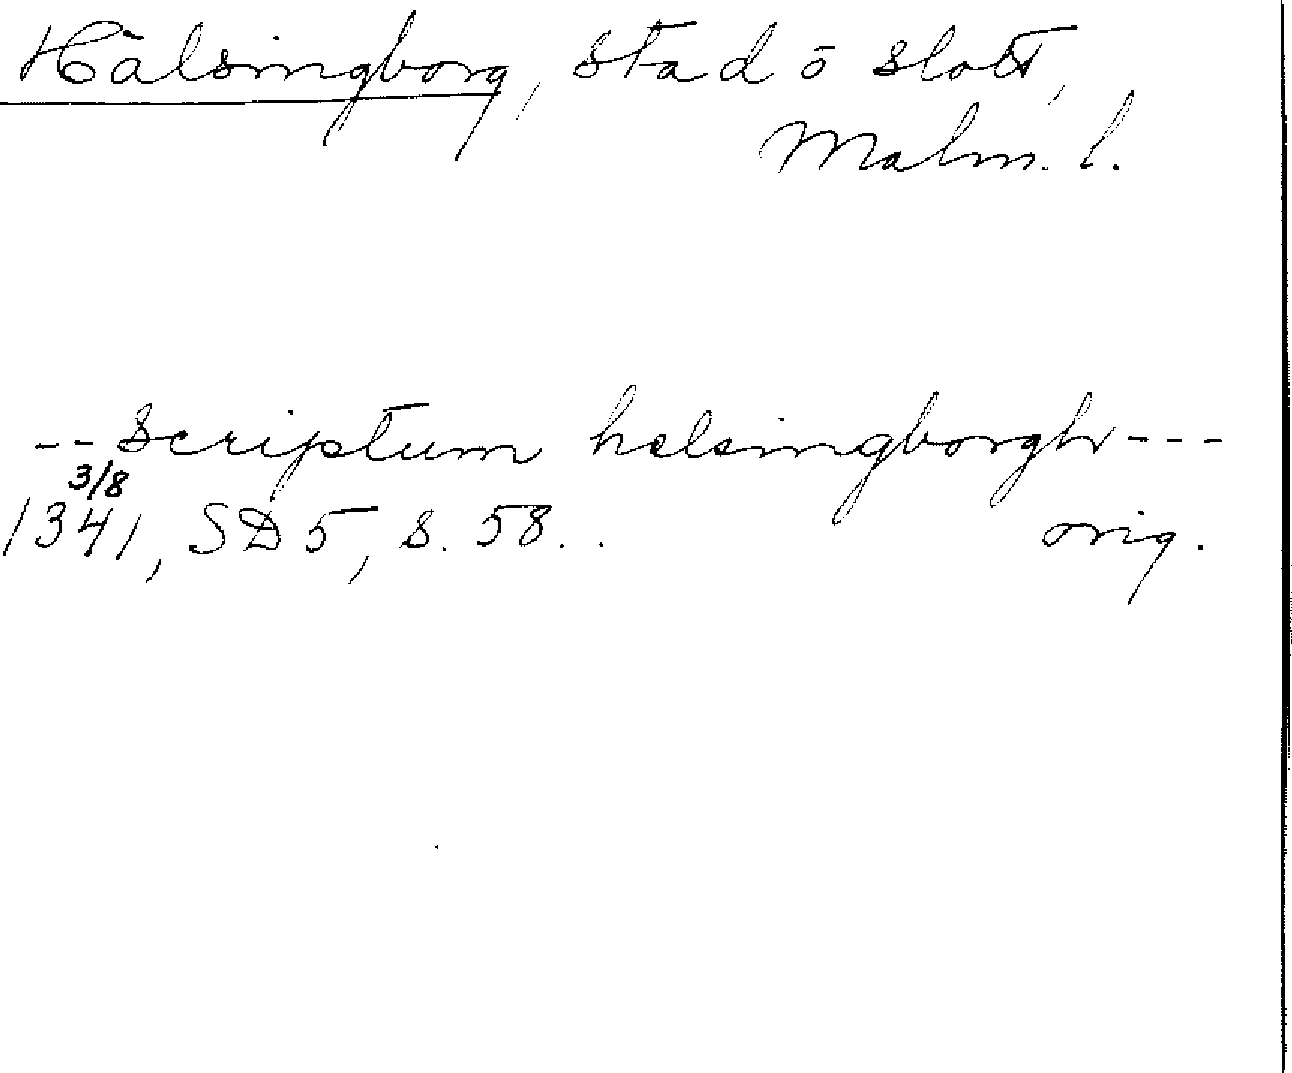 Hälsingborg, stad o slott,
Malm. l.
-- Scriptum helsingborgh ---
3/8
1341, SD 5, s. 58..
orig.